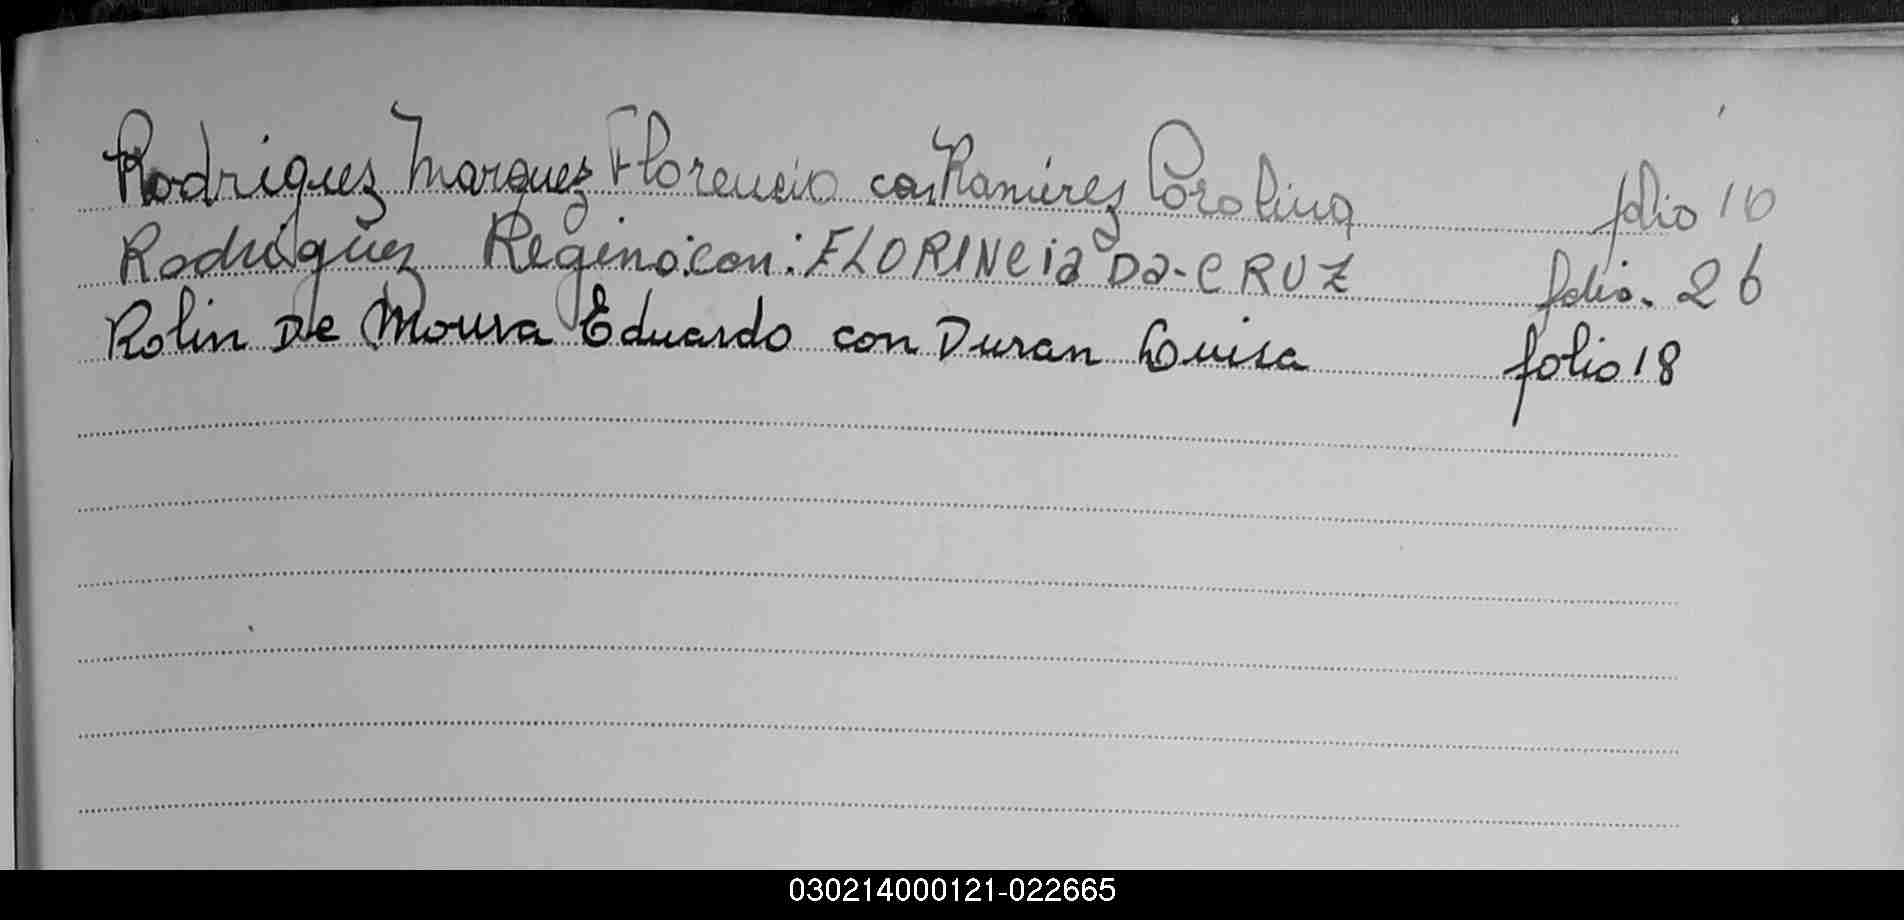 Rodriguez Marquez Florencio con Ramirez Carolina folio 10
Rodriguez Regino: con: FLORINCia Da-CRUZ folio. 26
Rolin De Moura Eduardo con Duran Luisa folio 18
030214000121-022665